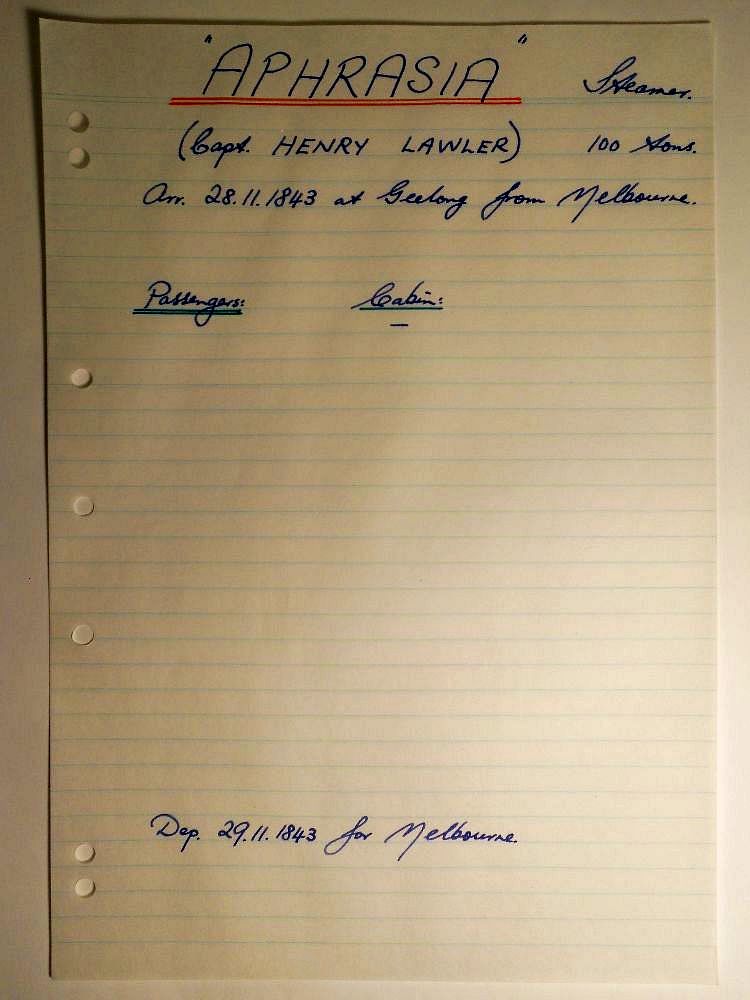 "APHRASIA" Steamer.
(Capt. HENRY LAWLER) 100 tons.
Arr. 28.11.1843 at Geelong from Melbourne.
Passengers: Cabin:
—
Dep. 29.11.1843 for Melbourne.